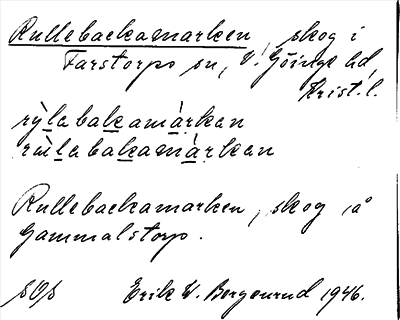 Rullebackamarken, skog i
Farstorps sn, V. Göinge hd,
Krist. l.
rỳlabakamàrkan
rùlabakamàrkan
Rullebackamarken, skog å
Gammalstorp.
sOs Erik W. Bergenrud 1946.